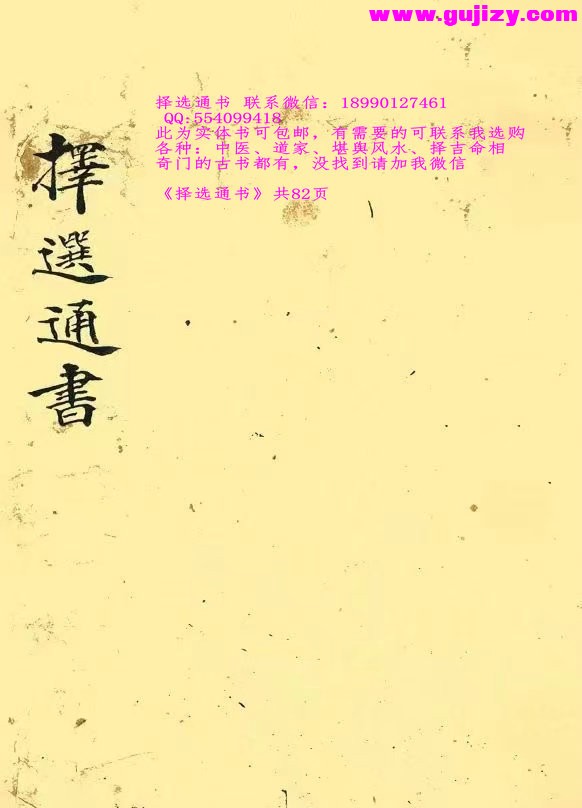 www.gujizy.com
择选通书 联系微信：18990127461
QQ:554099418
此为实体书可包邮，有需要的可联系我选购
各种：中医、道家、堪舆风水、择吉命相
奇门的古书都有，没找到请加我微信
《择选通书》共82页
擇選通書